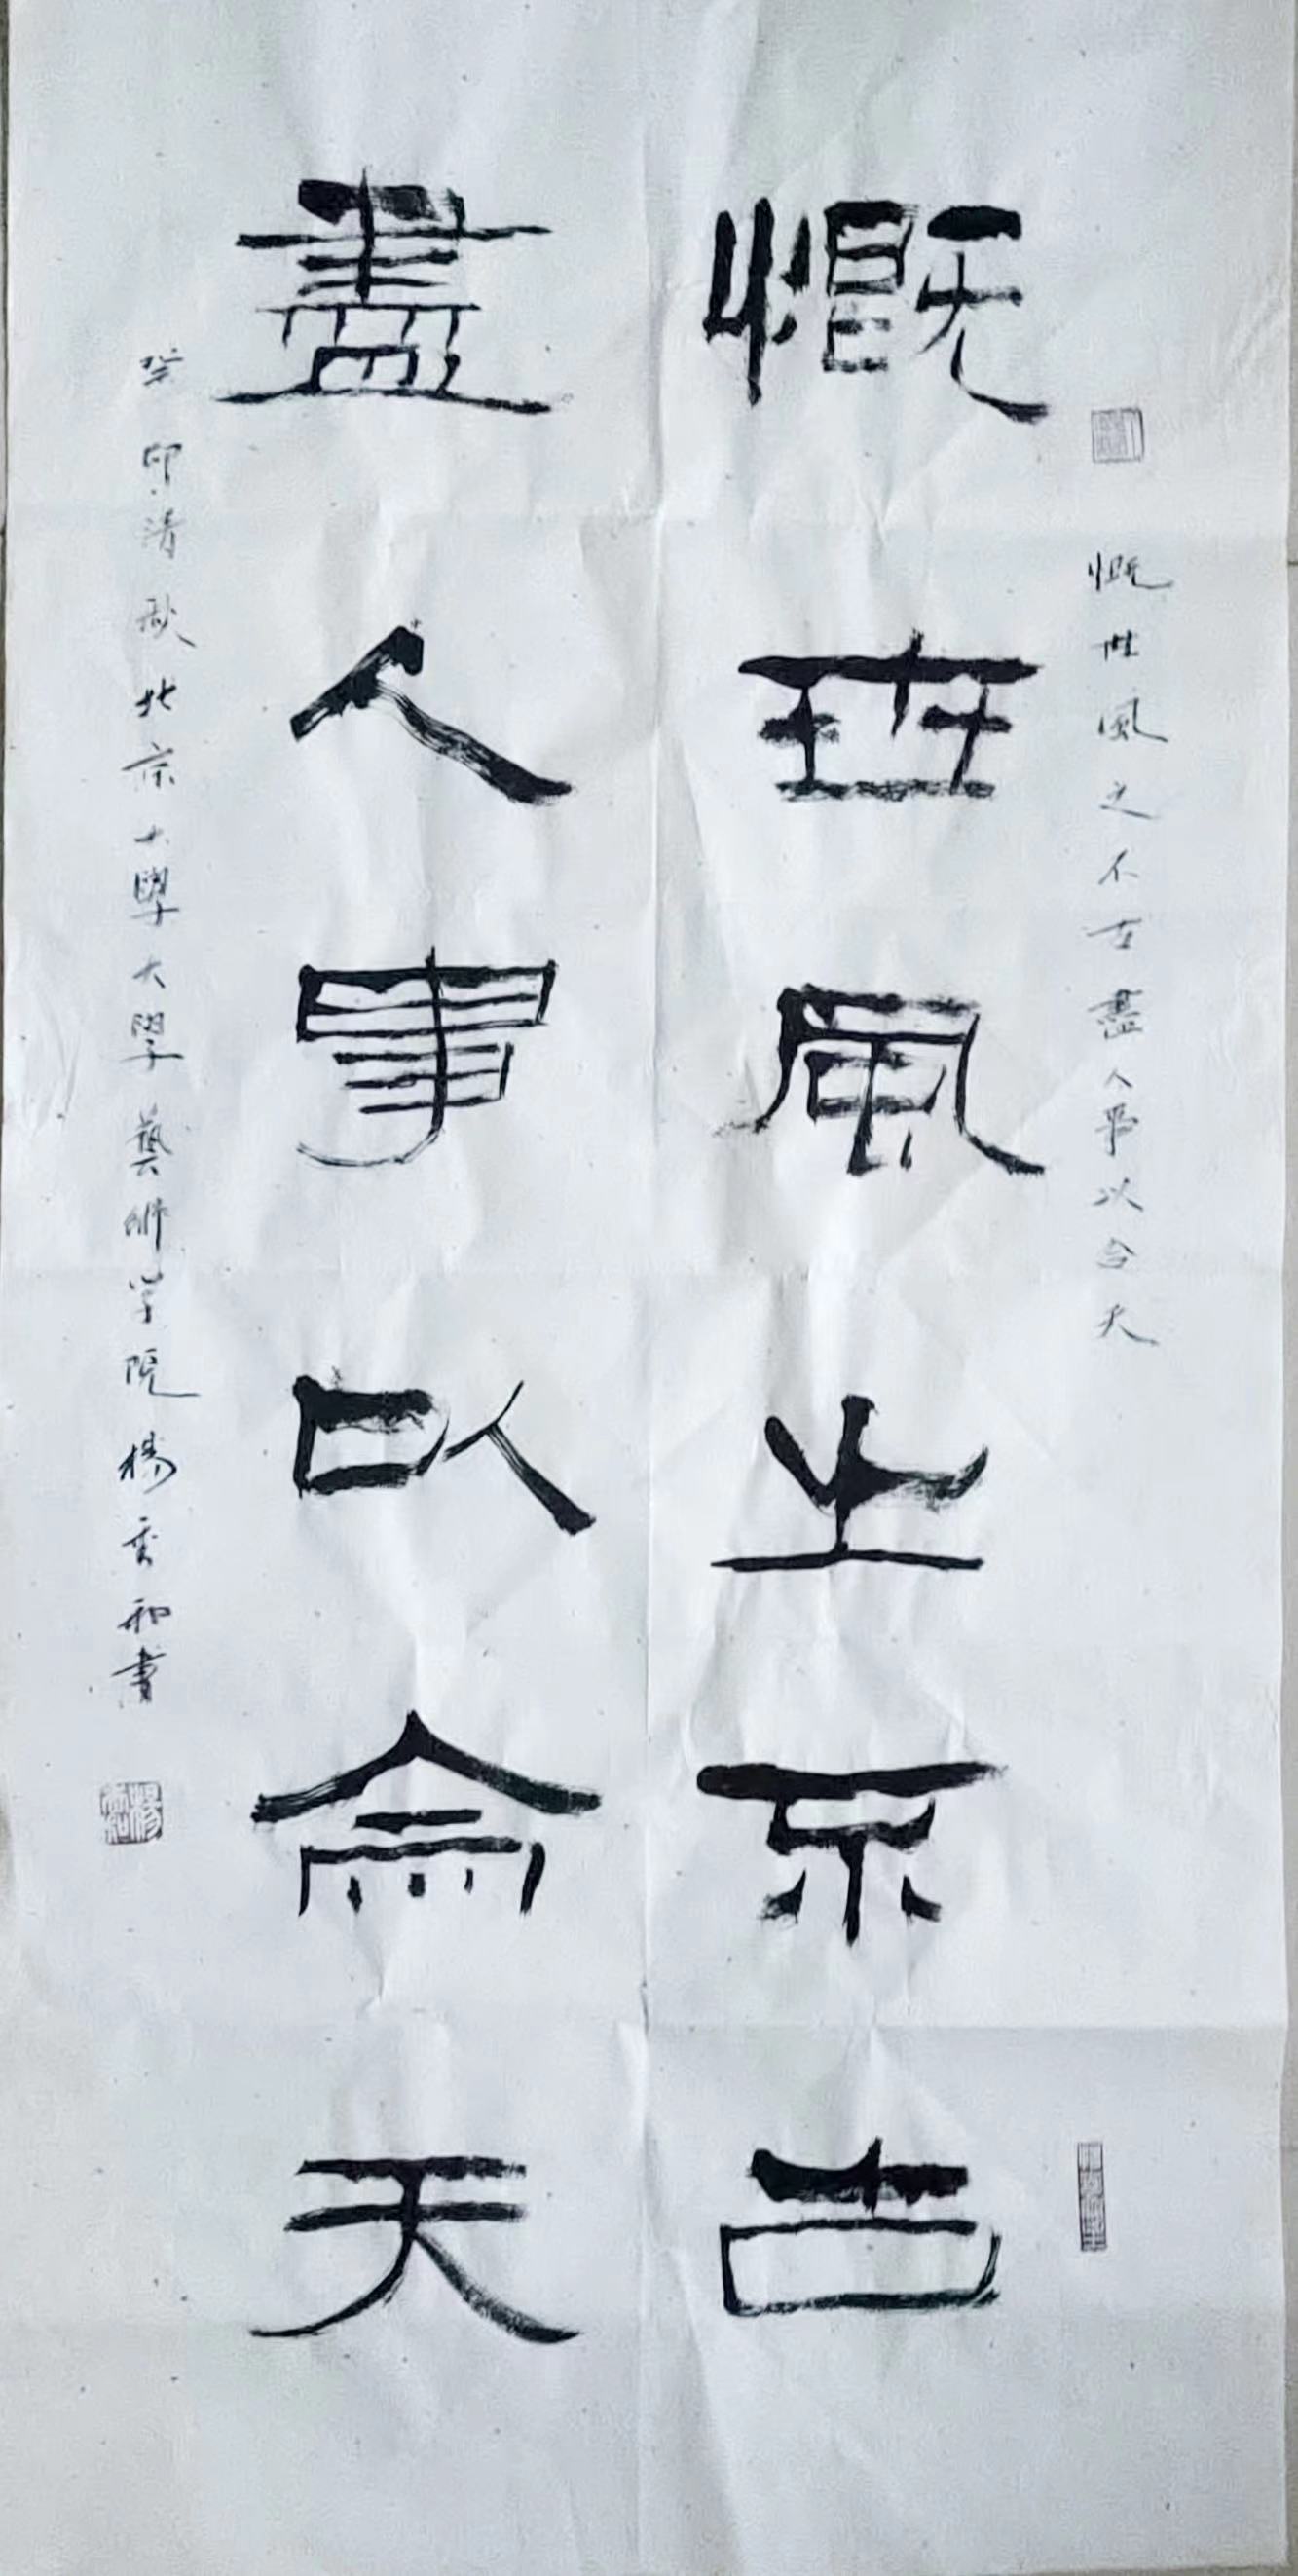 慨世風之不古盡人事以合天
慨世風之不古
盡人事以侖天
癸卯清秋北京大學大學藝術学院楊雲和書